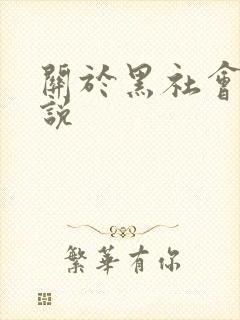 關於黑社會
說
繁華有你